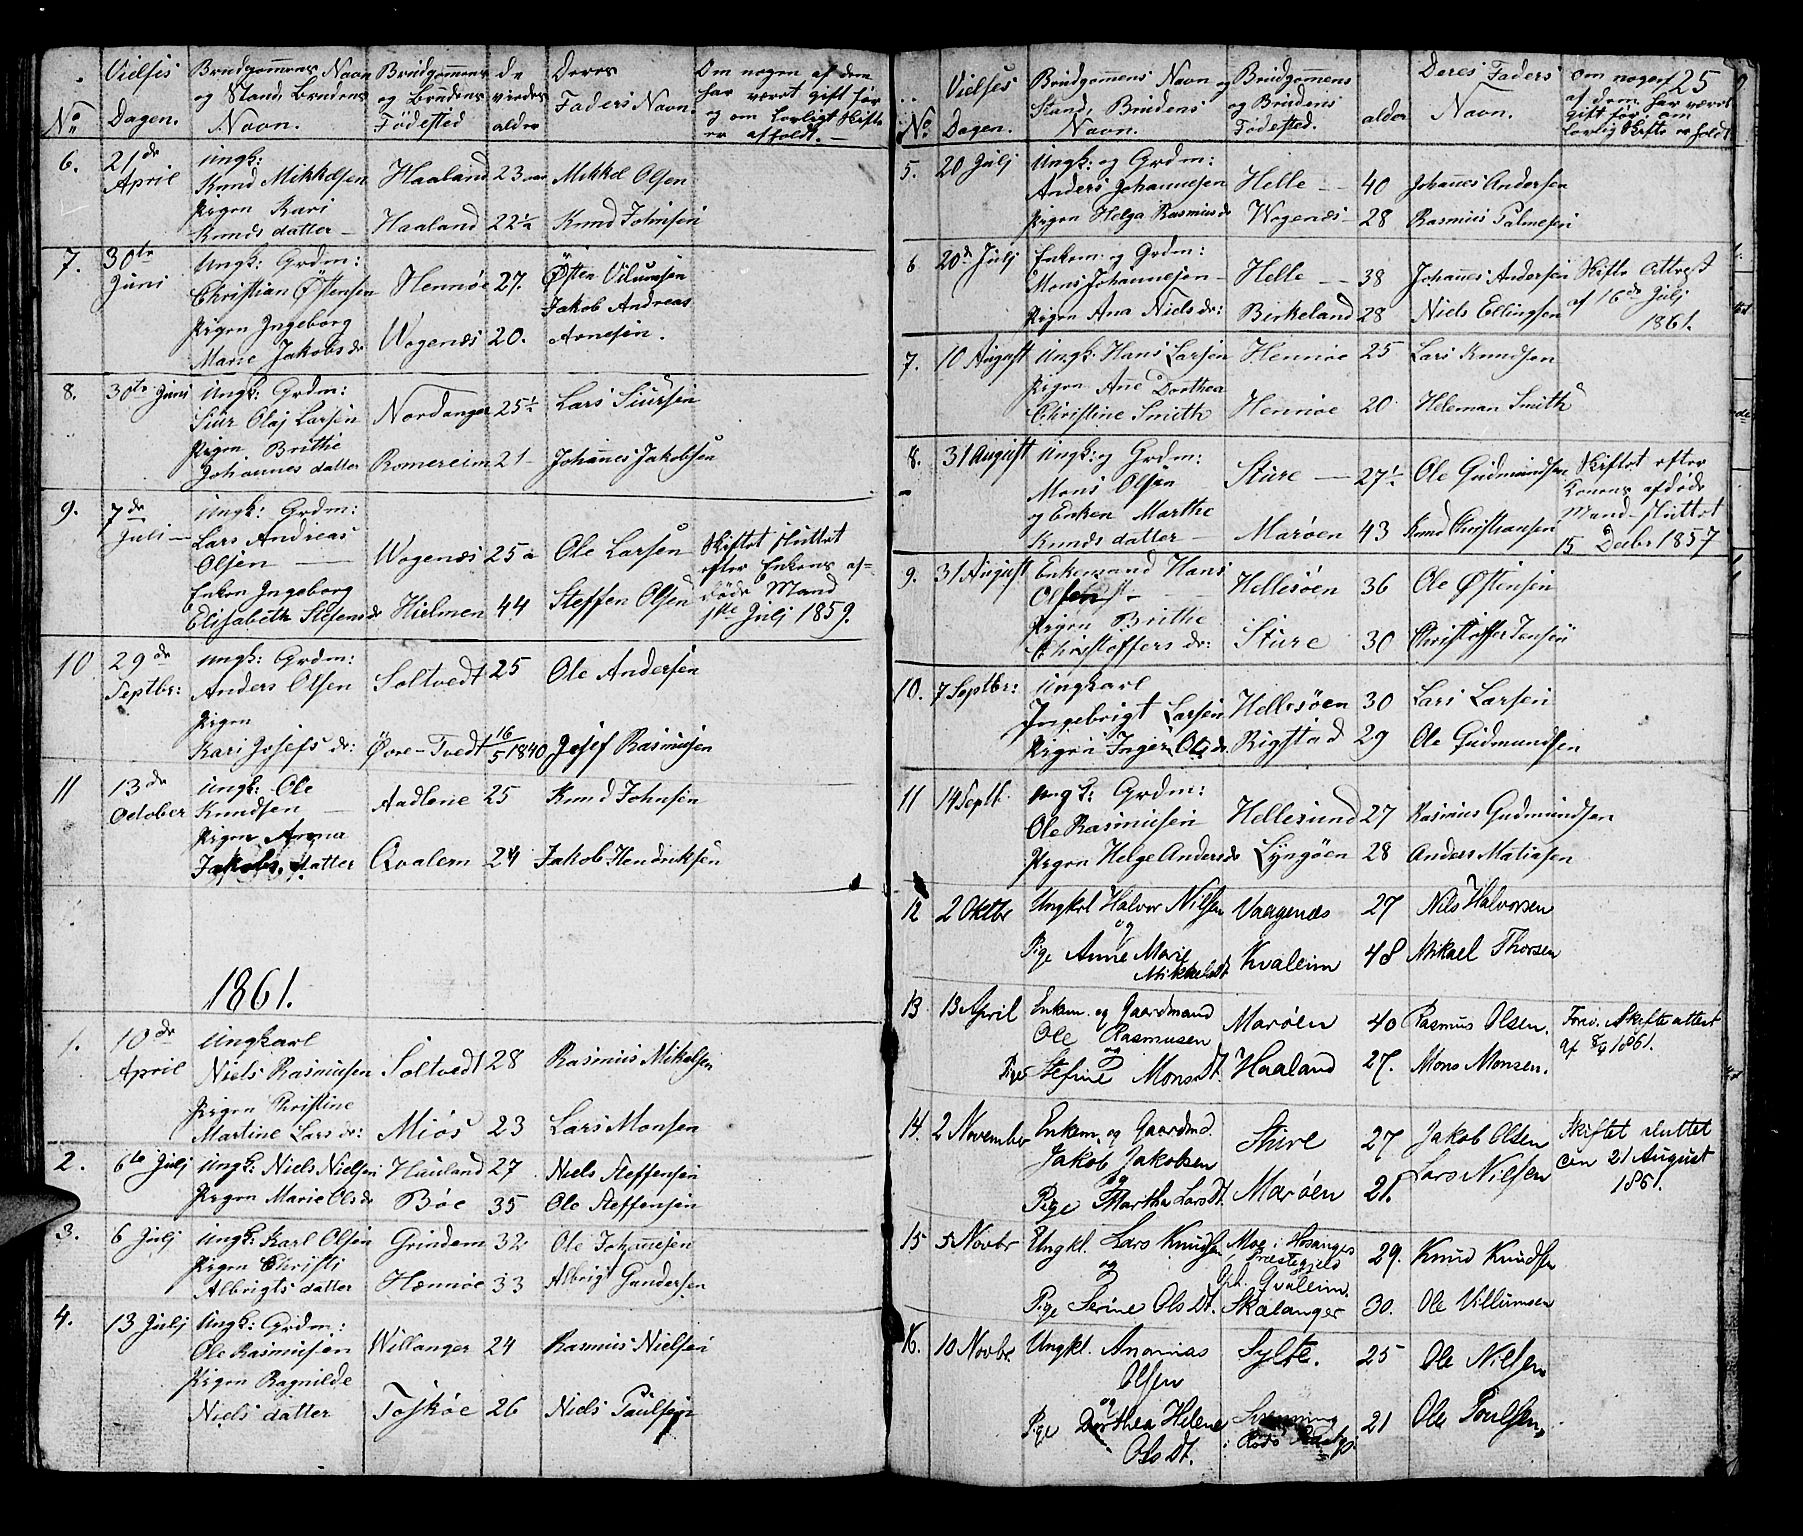 No. Vielses Dagen. Brudgommens Navn og Stand, Brudens Navn. Brudgommens og Brudens Fødested de vies alder Deres Faders Navn. Om nogen af dem har været gift før og om lovligt Skifte er afholdt. —
6. 21de April Ungk:
Knud Mikkelsen Haaland 23 Mikkel Olsen
Pigen Kari
Knuds datter — Haaland 22½ Knud Johnsen
7. 30te Juni Ungk: Grdm:
Christian Östensen Hennøe 27. Östen Vilumsen
Pigen Ingeborg
Marie Jakobsdr Wogenæs 20. Jakob Andreas Arnesen.
8. 30te Juni Ungk: Grdm:
Siur Olaj Larsen Nordanger 25½ Lars Siursen
Pigen Brithe
Johannes datter Romereim 21 — Johanes Jakobsen
9. 7de Juli — Ungk: Grdm:
Lars Andreas
Olsen — Wogenæs 25 Ole Larsen Skiftet sluttet
efter Enkens af=
Enken Ingeborg døde Mand
Elisabeth Stefensdr Hielmen 44 Steffen Olsen 1ste Julj 1859.
10 29de Septbr: Ungk: Grdm:
Anders Olsen Soltvedt 25 Ole Andersen
Pigen
Kari Josefs dr: Øvre-Tvedt 16/5 1840 Josef Rasmusen
11 13de October Ungk: Ole
Knudsen — Aadlene 25 Knud Johnsen
Pigen Anna
Jakobs datter Qvalem 24 Jakob Hendriksen
1861.
1. 10de April Ungkarl
Niels Rasmusen Soltvedt 28 Rasmus Mikelsen
Pigen Christine
Martine Lars dr: Miøs 23 Lars Monsen
2. 6te Julj Ungk: Niels Nielsen Hauland 27 Niels Steffensen
Pigen Marie Olsdr Bøe 35 Ole Steffensen
3. 6 Julj Ungk: Karl Olsen Grindem 32 Ole Johanesen
Pigen Christi
Albrigts datter Hennøe 33 Albrigt Gundersen
4. 13 Julj Ungk: Grdm:
Ole Rasmusen Willanger 24 Rasmus Nielsen
Pigen Ragnilde
Niels datter Toskøe 26 Niels Paulsen
25
No. Vielses Dagen. Brudgommens Navn og Stand, Brudens Navn. Brudgommens og Brudens Fødested. alder Deres Faders Navn. Om nogen af dem har været gift før, om lovlig Skifte er holdt
5. 20 Julj Ungk: og Grdm:
Anders Johannesen Helle — 40 Johanes Andersen
Pigen Helga Rasmusdr Wogenæs — 28 Rasmus Palmesen
6 20de Julj Enkem. og Grdm:
Mons Johannesen — Helle — 38 Johanes Andersen Skifte Attest
Pigen Ana Niels dr: Birkeland 28 Niels Ellingsen af 16de Julj
1861.
7. 10 August Ungk: Hans Larsen Hennøe 25 Lars Knudsen
Pigen Ane Dorthea
Christine Smith Hennøe 20 Heleman Smith
8. 31 August Ungk: og Grdm:
Mons Olsen Sture — 27½ Ole Gudmundsen Skiftet efter
Konens afdøde
og Enken Marthe Mand sluttet
Knuds datter — Marøen 43 Knud Christiansen 15 Decbr 1857
9. 31 August Enkemand Hans
Olsen — Hellesøen 36 Ole Østensen
Pigen Brithe
Christoffers dr: Sture 30 Christoffer Jensen
10. 7 Septbr: Ungkarl
Ingebrigt Larsen Hellesøen 30 Lars Larsen
Pigen Inger Olsdr. Rigstad 29 Ole Gudmundsen
11 14 Septb. Ungk: Grdm:
Ole Rasmusen Hellesund 27 Rasmus Gudmundsen
Pigen Helge Andersdr Lyngøen 28 Anders Matiasen
12 2 Oktbr Ungkrl Halvor Nilsen Vaagenæs 27 Nils Halvorsen
og
Pige Anne Marie
Mikkelsdt. Kvaleim 48 Mikael Thorsen
13 13 April Enkem. og Gaardmand
Ole Rasmusen Marøen 40 Rasmus Olsen. Forev. Skifteattest
og af 8/4 1861.
Pige Stefine Monsdt. Haaland 27. Mons Monsen.
14. 2 November Enkem. og Gaardmd.
Jakob Jakobsen Sture 27 Jakob Olsen Skiftet sluttet
og den 21 August
Pige Martha Larsdt. Marøen 21. Lars Nilsen 1861.
15 5 Novbr Ungkl. Lars Knudsen Moe i Hosanger Præstegjeld 29. Knud Knudsen
og Qvaleim.
Pige Serine Olsdt. Skalanger 30. Ole Villumsen
16. 10 Novbr. Ungkl. Ananias
Olsen Sylte. 25 Ole Nilsen
og
Pige Dorthea Helene
Olsdt. 21 Ole Poulsen